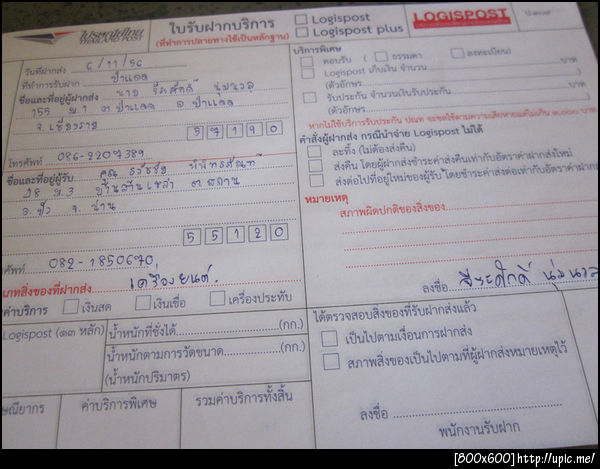 ไปรษณีย์ไทย
THAILAND POST
ใบรับฝากบริการ
(ที่ทำการปลายทางใช้เป็นหลักฐาน)
Logispost
Logispost plus
LOGISPOST
วันที่ฝากส่ง 6/11/56
ที่ทำการรับฝาก ป่าแดด
ชื่อและที่อยู่ผู้ฝากส่ง นาย จีระศักดิ์ นุ่มนวล
155 ม.1 ต.ป่าแดด อ.ป่าแดด
จ.เชียงราย
57190
โทรศัพท์ 086-2207389
ชื่อและที่อยู่ผู้รับ คุณ
28 ม.3
อ.ปัว จ.น่าน
55120
ศัพท์ 082-1850670
เภทสิ่งของที่ฝากส่ง เครื่องยนต์
ค่าบริการ เงินสด เงินเชื่อ เครื่องประทับ
Logispost (๑๓ หลัก)
น้ำหนักที่ชั่งได้ (กก.)
น้ำหนักตามการวัดขนาด (กก.)
(น้ำหนักปริมาตร)
ษณียากร
ค่าบริการพิเศษ
รวมค่าบริการทั้งสิ้น
บริการพิเศษ
ตอบรับ ( ธรรมดา ลงทะเบียน)
Logispost เก็บเงิน จำนวน บาท
(ตัวอักษร )
รับประกัน จำนวนเงินรับประกัน บาท
(ตัวอักษร )
คำสั่งผู้ฝากส่ง กรณีนำจ่าย Logispost ไม่ได้
ละทิ้ง (ไม่ต้องส่งคืน)
ส่งคืน โดยผู้ฝากส่งชำระค่าส่งคืนเท่ากับอัตราค่าฝากส่งใหม่
ส่งต่อไปที่อยู่ใหม่ของผู้รับ โดยชำระค่าส่งต่อเท่ากับอัตราค่าฝากส่ง
หมายเหตุ
สภาพผิดปกติของสิ่งของ
ลงชื่อ จีระศักดิ์ นุ่มนวล
ได้ตรวจสอบสิ่งของที่รับฝากส่งแล้ว
เป็นไปตามเงื่อนการฝากส่ง
สภาพสิ่งของเป็นไปตามที่ผู้ฝากส่งหมายเหตุไว้
ลงชื่อ
พนักงานรับฝาก
[800x600]http://upic.me/